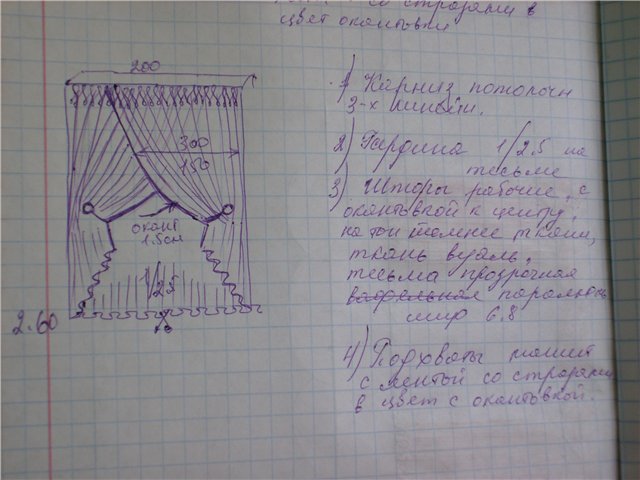 со стразами в
цвет окантовки
200
300
150
окант
1.5см
1/2.5
2.60
1) Карниз потолочн
3-х
2) Гардина 1/2.5 на
тесьме
3) Шторы рабочие, с
окантовкой к центру,
на тон темнее ткани,
ткань вуаль,
тесьма прозрачная
вафельная
6.8
4) Подхваты
с лентой со стразами
в цвет с окантовкой.